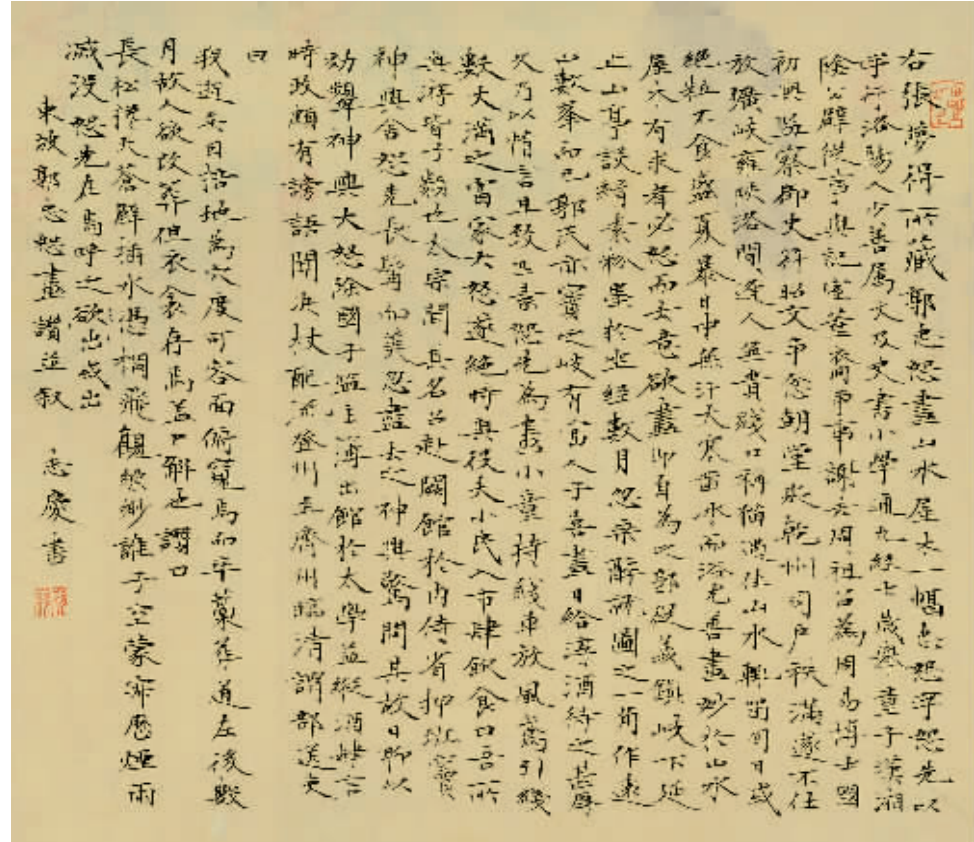 右張夢得所藏郭忠恕畫山水屋木一幅忠恕字恕先以
字行洛陽人少善屬文及史書小學通九經七歲舉童子漢湘
陰公辟從事與記室董裔爭事謝去周祖召為周易博士國
初與監察御史符昭文爭忿朝堂貶乾州司戶秩滿遂不仕
放曠岐雍陝洛間逢人無貴賤口稱猫遇佳山水輒留旬日或
絕粒不食盛夏暴日中無汗大寒鑿冰而浴尤善畫妙於山水
屋木有求者必怒而去意欲畫即自為之郭從義鎮岐下延
止山亭設絹素粉墨於坐經數月忽乘醉就圖之一角作遠
山數峯而已郭氏亦寶之岐有富人子喜畫日給淳酒待之甚厚
久乃以情言且致匹素恕先為畫小童持綫車放風鳶引綫
數丈滿之富家大怒遂絕時與役夫小民入市肆飲食曰吾所
與游皆子類也太宗聞其名召赴闕館於內侍省押班竇
神興舍恕先長髯而美忽盡去之神興驚問其故曰聊以
効顰神興大怒除國子監主簿出館於太學益縱酒肆言
時政頗有謗語聞決杖配流登州至齊州臨清謂部送吏
曰
我逝矣因掊地為穴度可容面俯窺焉而卒藁葬道左後數
月故人欲改葬但衣衾存焉蓋尸解也讚曰
長松攙天蒼壁插水憑欄飛觀縹緲誰子空蒙寂歷煙雨
滅没恕先在焉呼之欲出或出
東坡郭忠恕畫讚並叙 志慶書